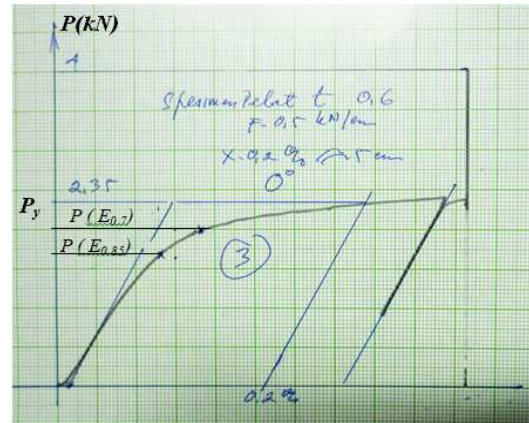 P(kN)
4
Spesimen Pelat t 0,6
F=0,5 kN/cm
X=0,2 % 5 cm
0°
2,35
P_y
P(E_{0.7})
P(E_{0.85})
3
0.2 %